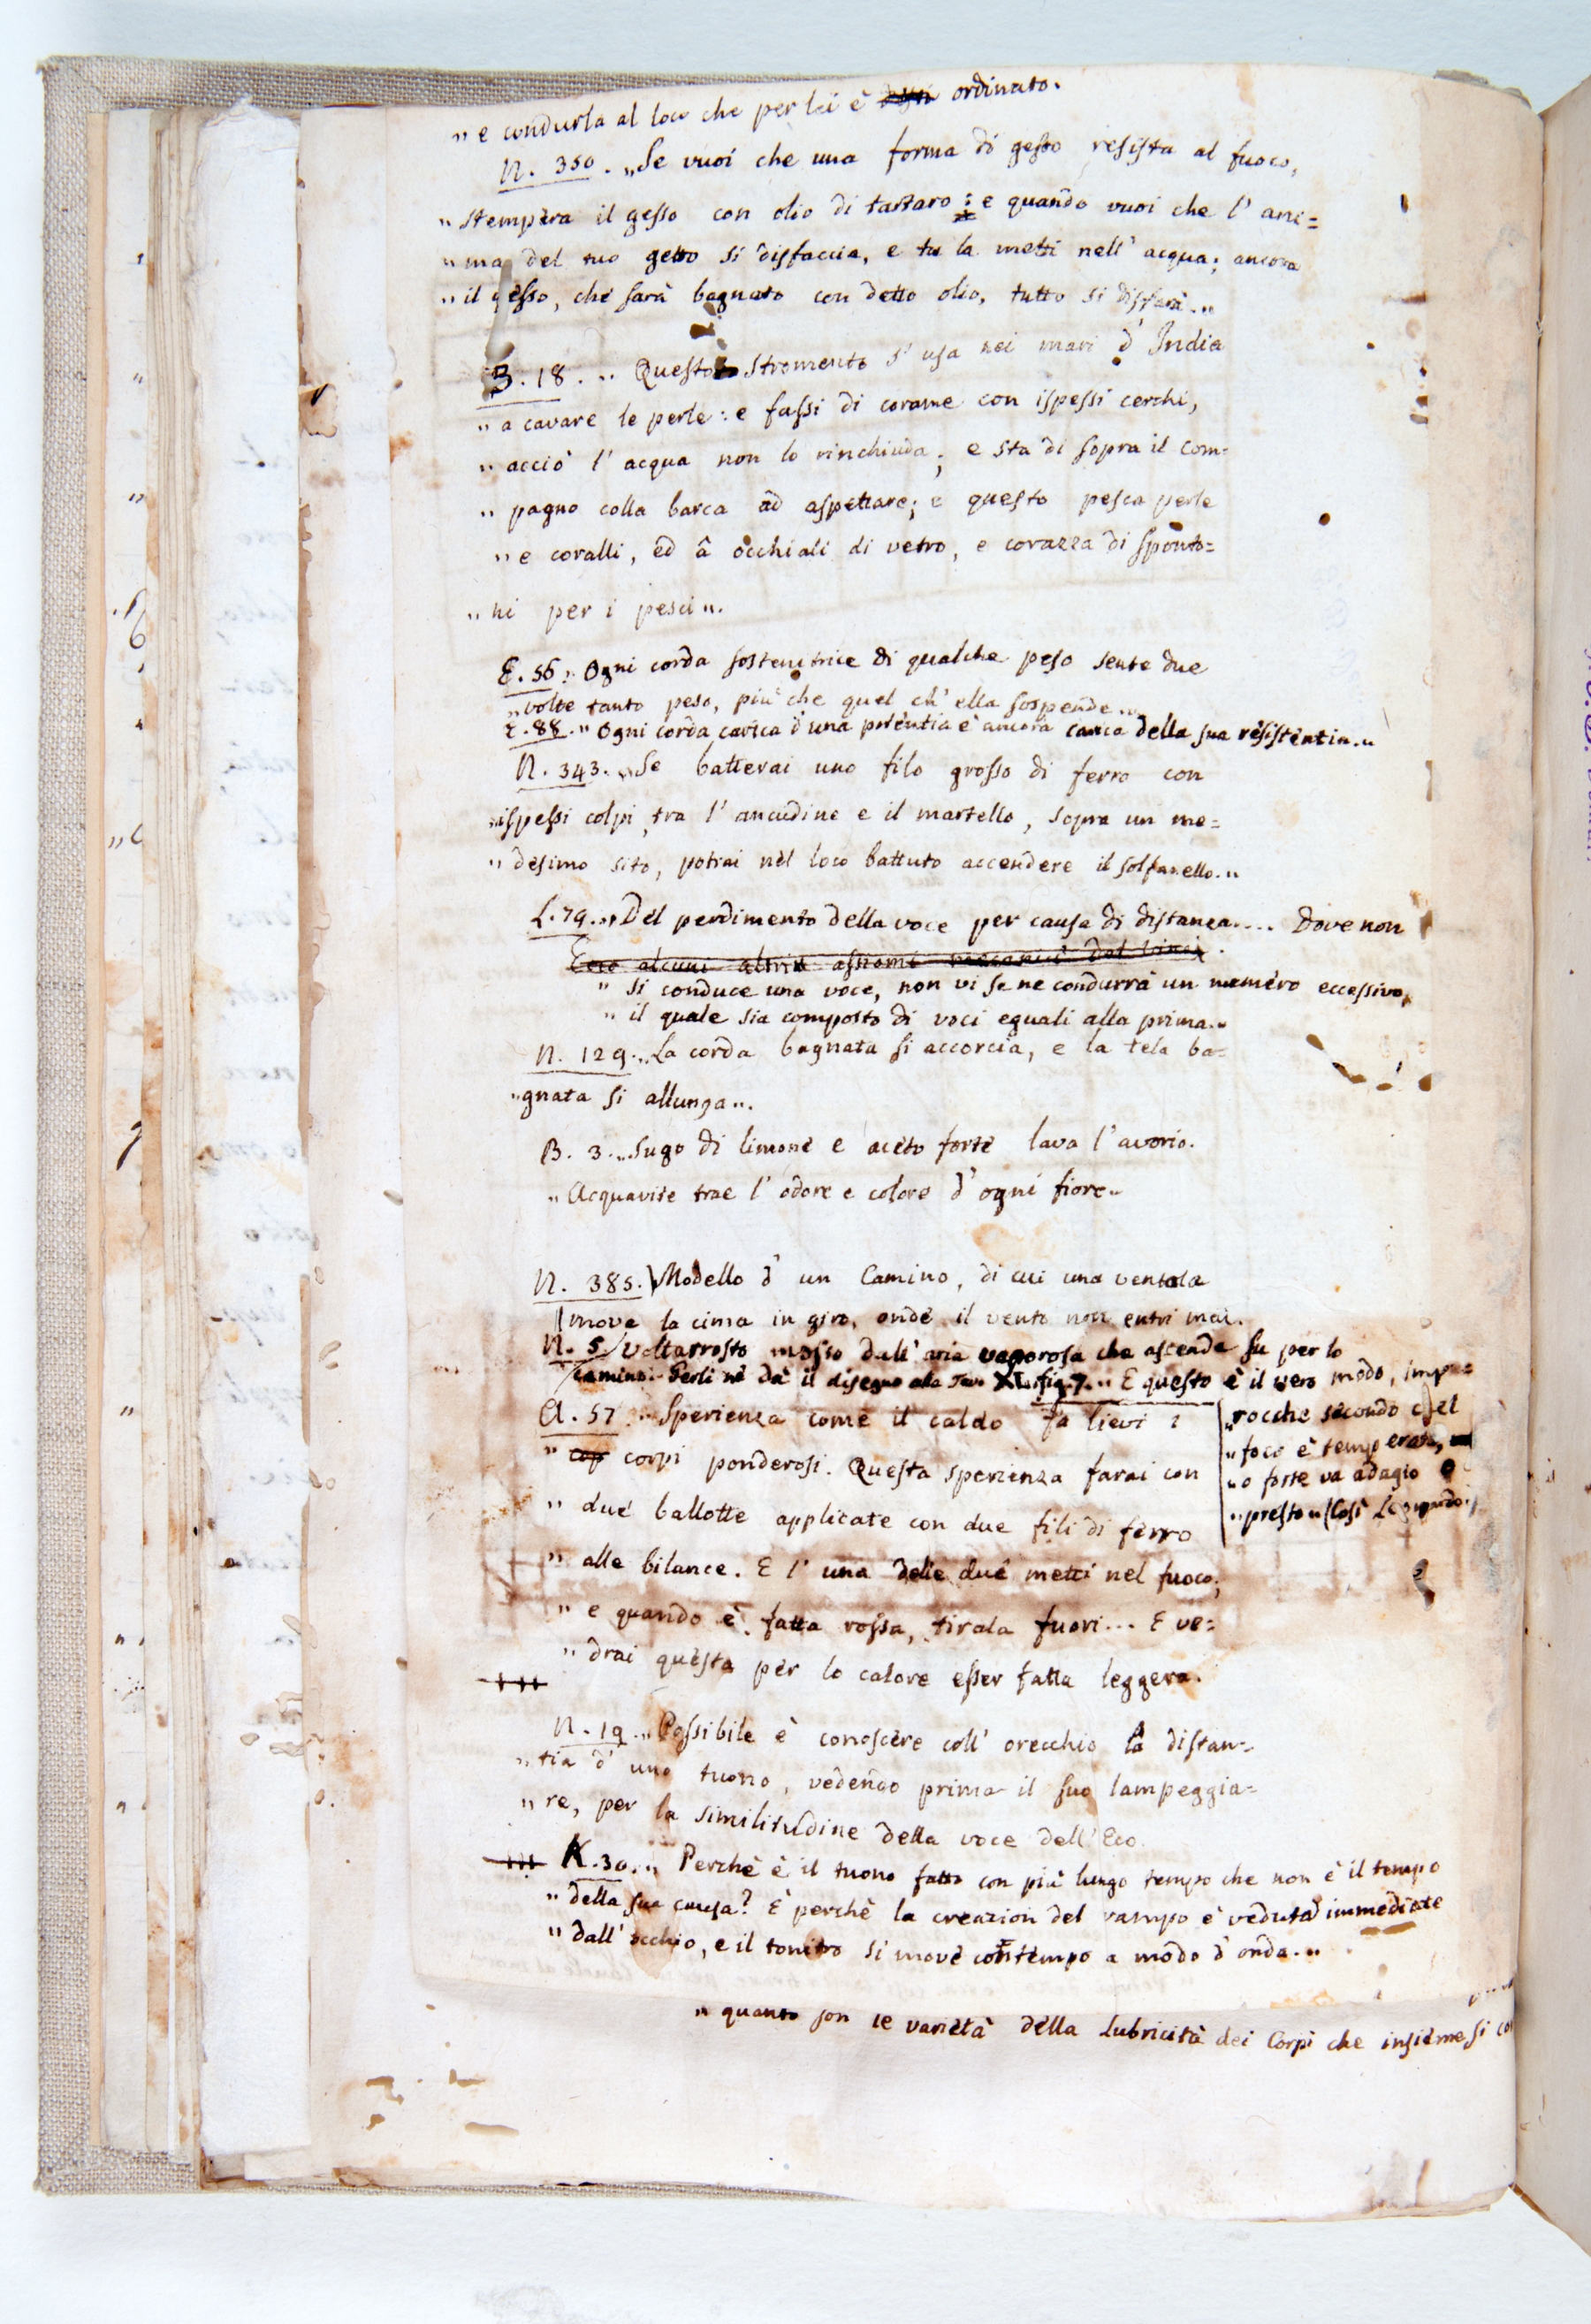 „ e condurla al loco che per lei è ordinato.
N. 350. „Se vuoi che una forma di gesso resista al fuoco,
„ stempera il gesso con olio di tartaro : e quando vuoi che l' ani=
„ ma del tuo getto si disfaccia, e tu la metti nell' acqua; ancora
„ il gesso, che sarà bagnato con detto olio, tutto si disfarà.„
B. 18. „ Questo stromento s' usa nei mari d' India
„ a cavare le perle: e fassi di corame con ispessi cerchi,
„ acciò l' acqua non lo rinchiuda; e sta di sopra il com=
„ pagno colla barca ad aspettare; e questo pesca perle
„ e coralli, ed à occhiali di vetro, e corazza di sponto=
„ ni per i pesci„.
E. 56. Ogni corda sostenitrice di qualche peso sente due
„volte tanto peso, più che quel ch' ella sospende.„
E. 88. „ Ogni corda carica d' una potentia è ancora carica della sua resistentia.„
N. 343. „Se batterai uno filo grosso di ferro con
„ispessi colpi, tra l' ancudine e il martello, sopra un me=
„ desimo sito, potrai nel loco battuto accendere il solfanello.„
L. 79. „Del perdimento della voce per causa di distanza.... Dove non
Ecco alcuni altri assiomi meccanici del Vinci.
„ si conduce una voce, non vi se ne condurrà un numero eccessivo,
„ il quale sia composto di voci eguali alla prima.„
N. 129. „La corda bagnata si accorcia, e la tela ba=
„gnata si allunga„.
B. 3. „Sugo di limone e aceto forte lava l' avorio.
„ Acquavite trae l' odore e colore d' ogni fiore„
N. 385. Modello d' un Camino, di cui una ventola
move la cima in giro, onde il vento non entri mai.
N. 5. Voltarrosto mosso dall' aria vaporosa che ascende su per lo
camino. Gerli ne dà il disegno alla Tav. XL. fig. 7. „ E questo è il vero modo, impe=
„rocche secondo chel
„ foco è temperato,
„ o forte va adagio o
„ presto„ (Così Leonardo.)
A. 57. „ Sperienza come il caldo fa lievi i
„ corpi ponderosi. Questa sperienza farai con
„ due ballotte applicate con due fili di ferro
„ alle bilance. E l' una delle due metti nel fuoco;
„ e quando è fatta rossa, tirala fuori... E ve=
„ drai questa per lo calore esser fatta leggera.
N. 19. „Possibile è conoscere coll' orecchio la distan=
„ tia d' uno tuono, vedendo prima il suo lampeggia=
„ re, per la similitudine della voce dell' Eco.
K. 30. „ Perchè è il tuono fatto con più lungo tempo che non è il tempo
„ della sua causa? E perchè la creazion del vampo è veduta immediate
„ dall' occhio, e il tonitro si move con tempo a modo d' onda.„
„ quanto son le varietà della Lubricità dei Corpi che insieme si